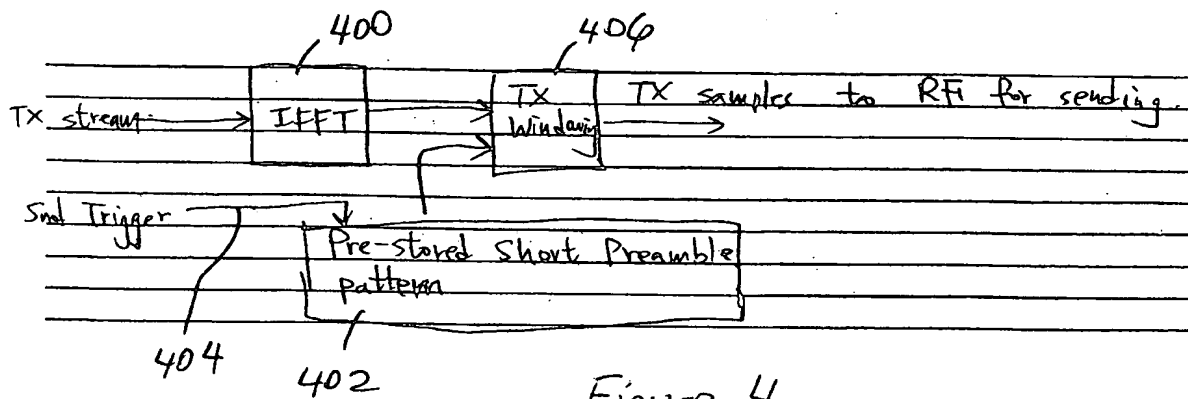 400
406
TX stream
IFFT
TX
Windowing
TX samples to RF for sending.
Snd Trigger
Pre-stored Short Preamble
pattern
404
402
Figure 4